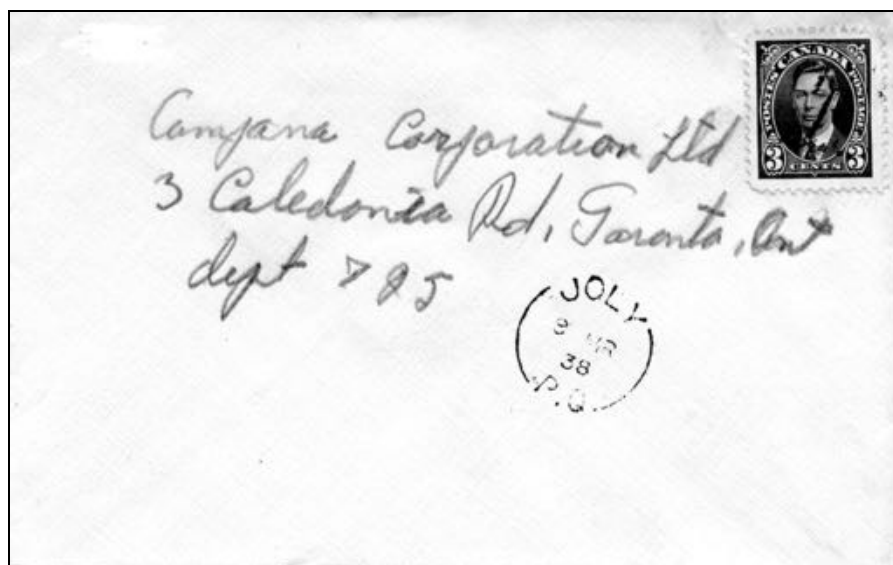 POSTES CANADA POSTAGE
3 CENTS 3
Campana Corporation Ltd
3 Caledonia Rd, Toronto, Ont
dept 795
JOLY
8 MR
38
P.Q.